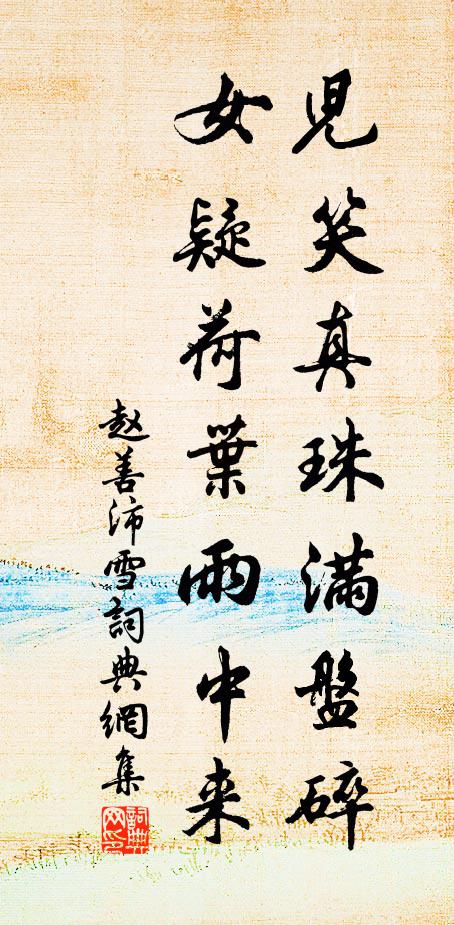 児笑真珠滿盤碎
女疑荷葉雨中来
趙善沛雪詞典網集
詞典網印